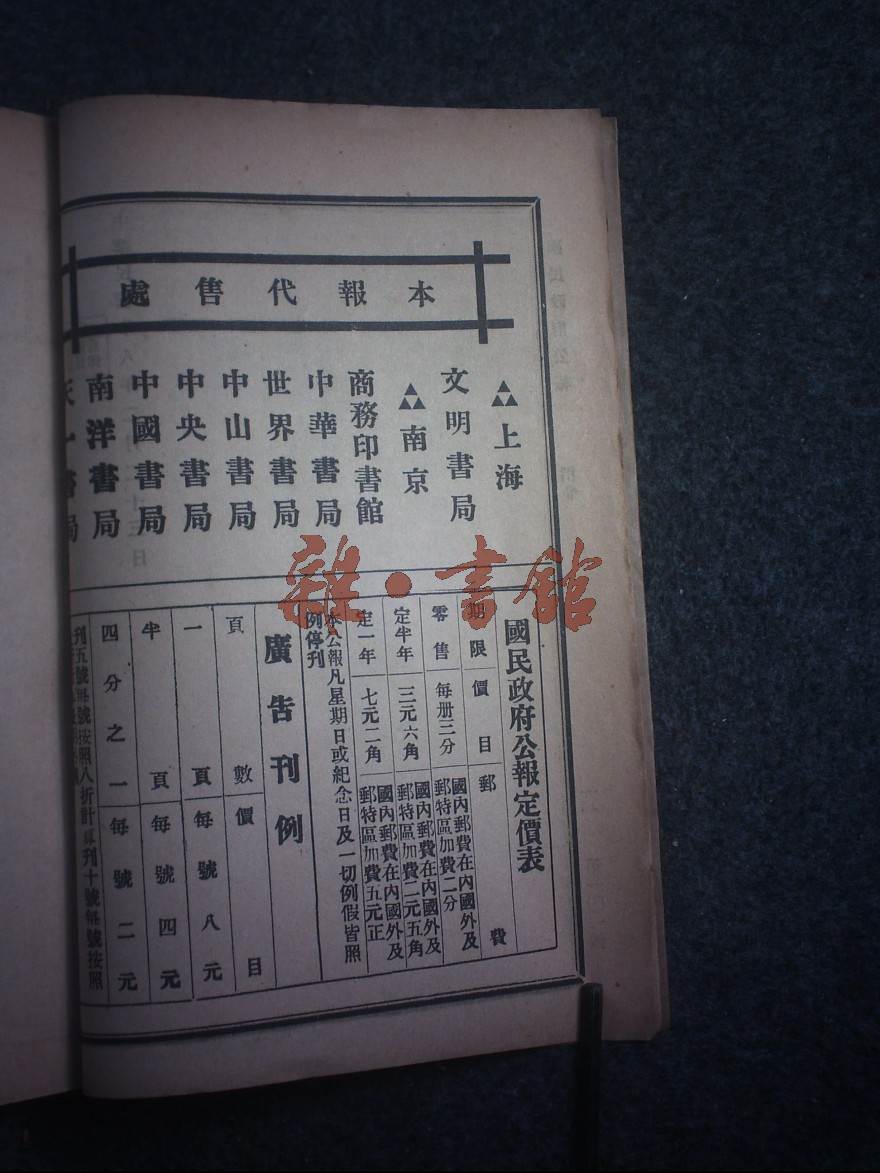 本報代售處
上海
文明書局
南京
商務印書館
中華書局
世界書局
中山書局
中央書局
中國書局
南洋書局
天一書局
國民政府公報定價表
期限 價目 郵費
零售 每册三分 國內郵費在內國外及郵特區加費二分
定半年 三元六角 國內郵費在內國外及郵特區加費二元五角
定一年 七元二角 國內郵費在內國外及郵特區加費五元正
本公報凡星期日或紀念日及一切例假皆照
例停刊
廣告刊例
頁數 價目
一頁 每號八元
半頁 每號四元
四分之一 每號二元
刊五號每號按照八折計算刊十號每號按照
雜·書館